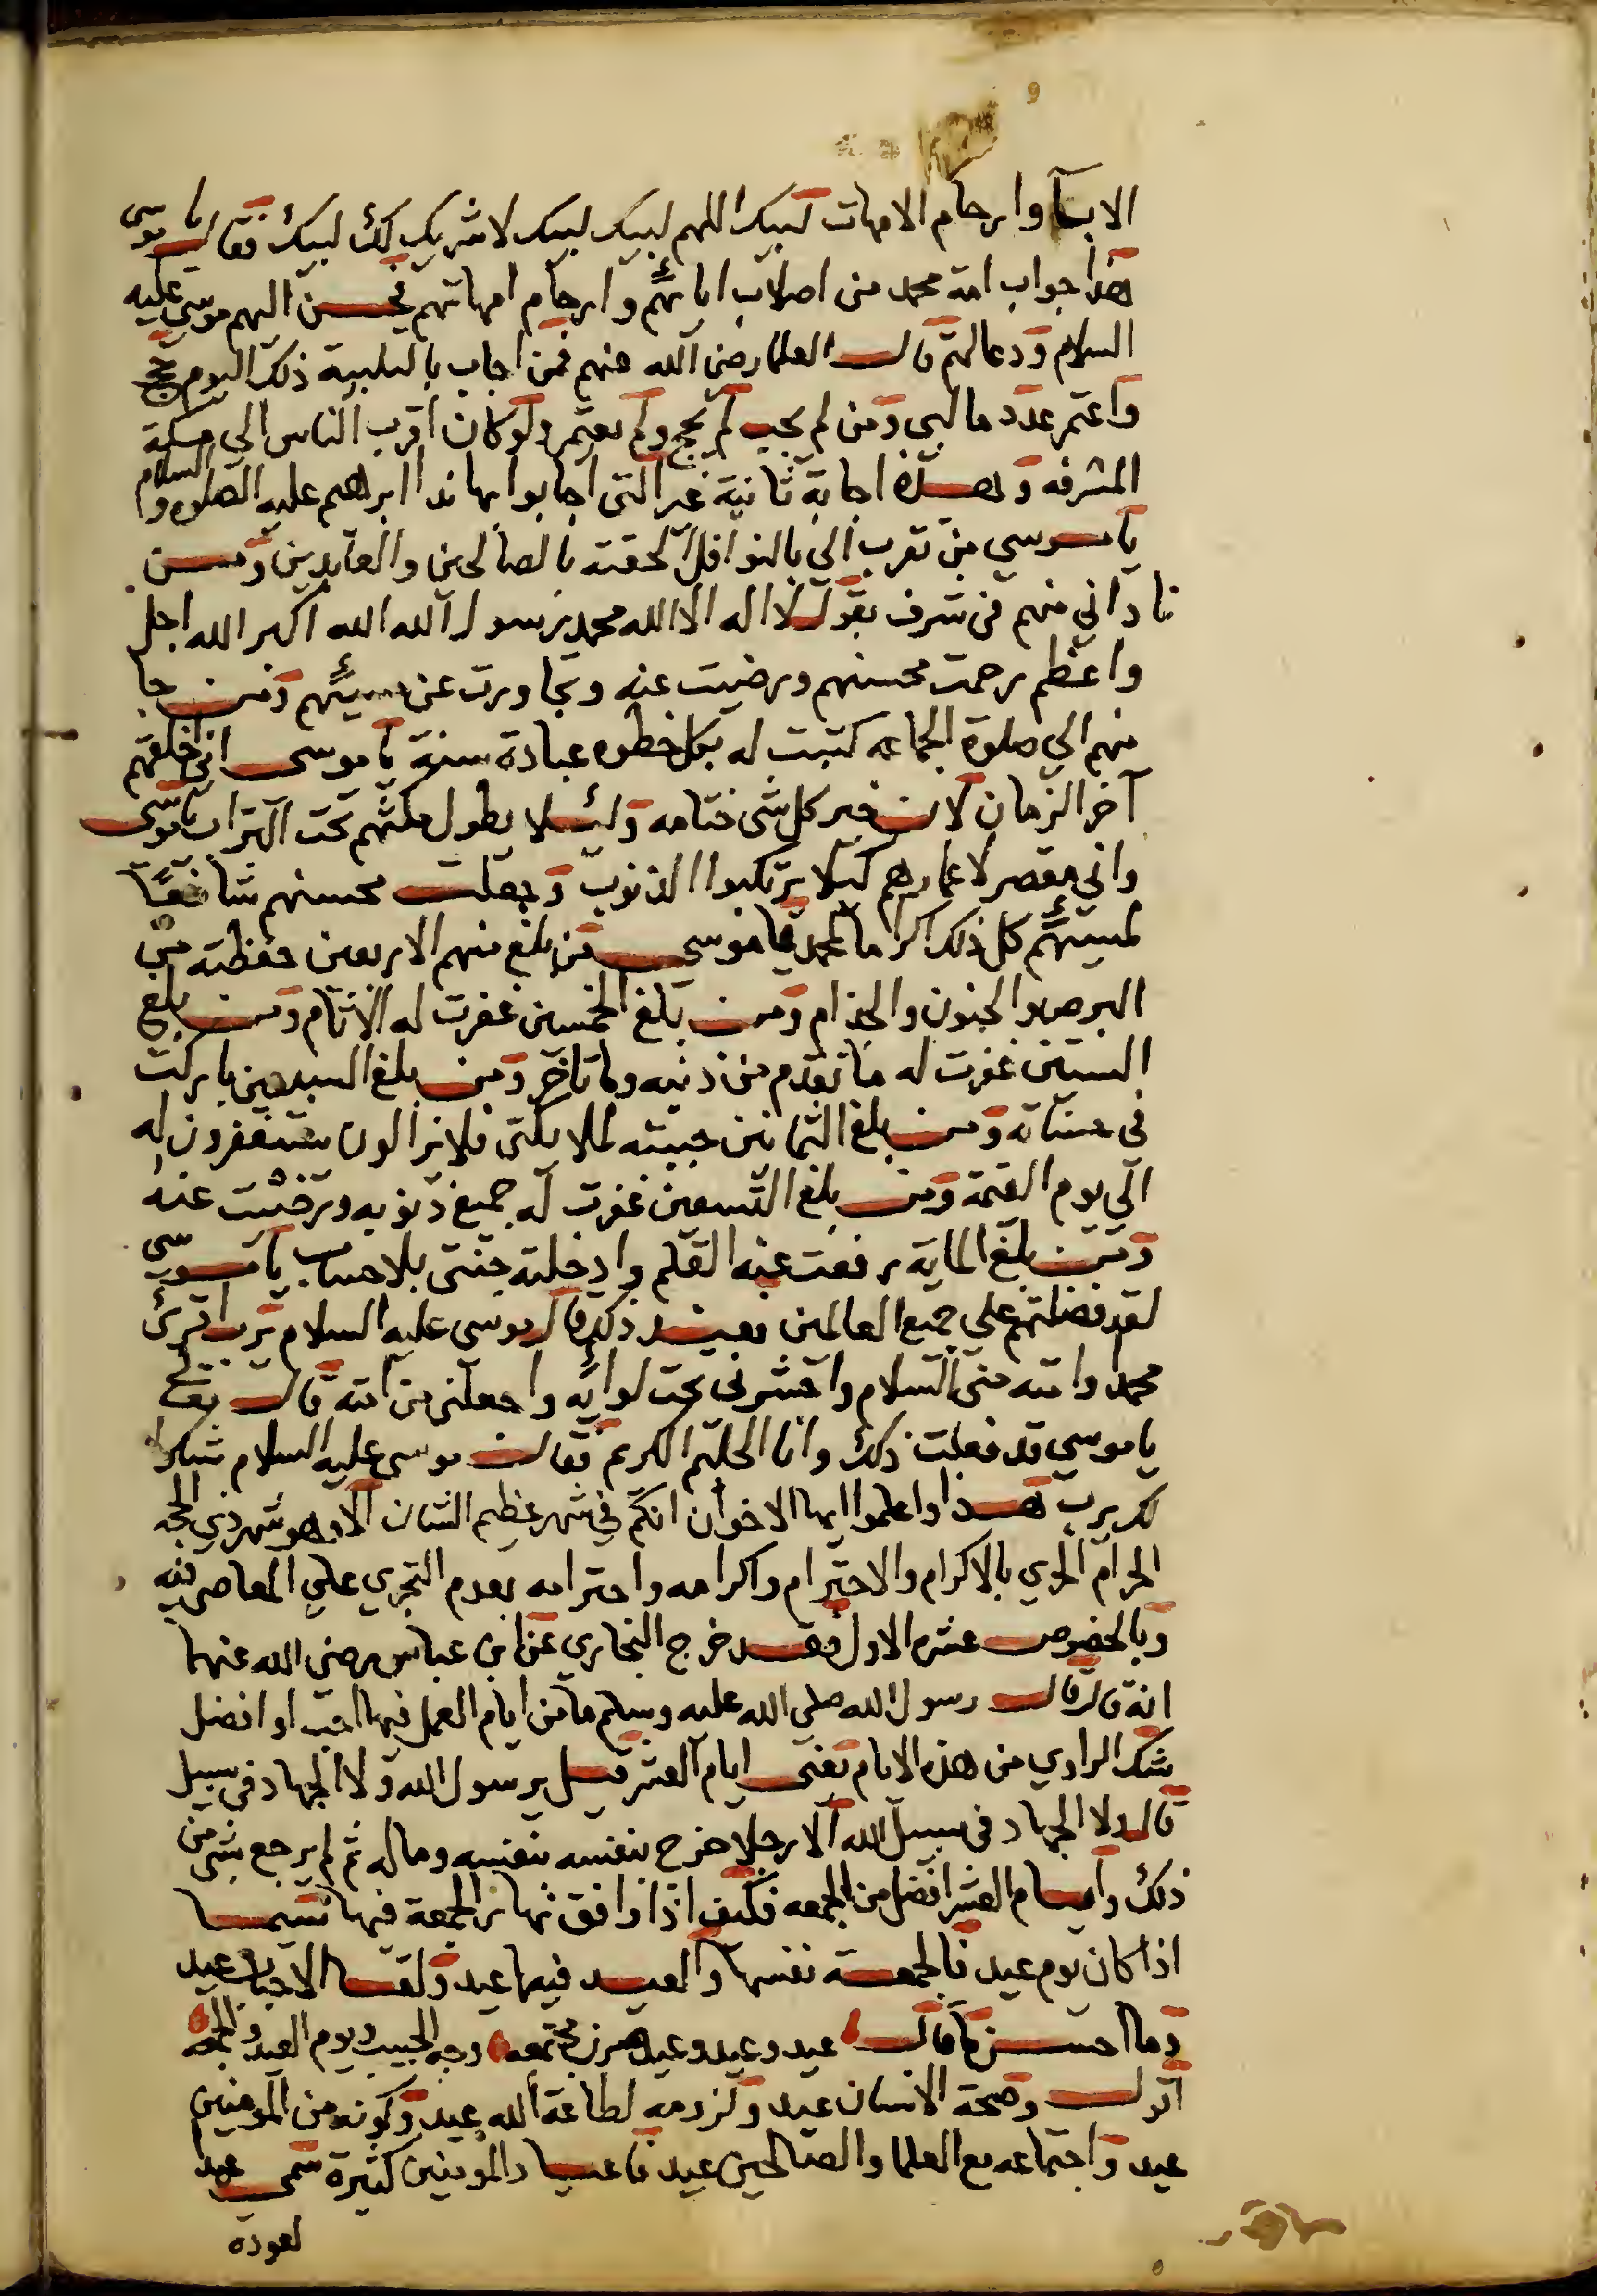 9
الابآ وارحام الامهات لبيك اللهم لبيك لبيك لا شريك لك لبيك فقال ياموسى
هذا جواب امة محمد من اصلاب ابائهم وارحام امهاتهم فحسن اليهم موسي عليه
السلام ودعا لهم قال العلما رضى الله عنهم فمن اجاب بالتلبية ذلك اليوم حج
واعتمر عدد ما لبى ومن لم يجب لم يحج ولم يعتمر ولو كان اقرب الناس الي مكة
المشرفه وهذه اجابة ثانية غير التى اجابوا بها ندا ابراهيم عليه الصلوه والسلام
ياموسي من تقرب الى بالنوافل الحقته بالصالحين والعابدين ومن
ناداني منهم في شرف بقول لا اله الا الله محمد رسول الله الله اكبر الله اجل
واعظم رحمت محسنهم ورضيت عنه وتجاوزت عن مسيئهم ومن جا
منهم الي صلوة الجماعه كتبت له بكل خطوه عبادة سنة ياموسى انى خلقتهم
آخر الزمان لان خير كل شى ختامه ولئلا يطول مكثهم تحت التراب ياموسى
واني مقصر لاعمارهم كيلا يرتكبوا الذنوب وجعلت محسنهم شافعا
لمسيئهم كل ذلك اكراما لمحمد ياموسى من بلغ منهم الاربعين حفظته من
البرص والجنون والجذام ومن بلغ الخمسين غفرت له الاثام ومن بلغ
الستين غفرت له ما تقدم من ذنبه وما تاخر ومن بلغ السبعين باركت
في حسناته ومن بلغ الثمانين حببته لملايكتى فلا يزالون يستغفرون له
الى يوم القيمة ومن بلغ التسعين غفرت له جميع ذنوبه ورضيت عنه
ومن بلغ الماية رفعت عنه القلم وادخلته جنتى بلا حساب ياموسي
لقد فضلتهم على جميع العالمين فعند ذلك قال موسى عليه السلام يرب اقرئ
محمدا وامته منى السلام واحشرنى تحت لوائه واجعلنى من امته قال نعم
ياموسي قد فعلت ذلك وانا الحليم الكريم فقال موسى عليه السلام شكرا
لك يرب هذا واعلموا ايها الاخوان انكم في شهر عظيم الشان الا وهو شهر ذي الحجه
الحرام الحري بالاكرام والاحترام واكرامه واحترامه بعدم التجري على المعاصى فيه
وبالخصوص عشره الاول فقد خرج البخاري عن ابن عباس رضي الله عنهما
انه قال قال رسول الله صلى الله عليه وسلم ما من ايام العمل فيها احب او افضل
شك الراوي من هذه الايام يعنى ايام العشر قيل يرسول الله ولا الجهاد في سبيل
قال ولا الجهاد في سبيل الله الا رجلا خرج بنفسه بنفسه وماله ثم لم يرجع بشى من
ذلك وايام العشر افضل من الجمعه فكيف اذا وافق نهار الجمعة فيها سيما
اذا كان يوم عيد فالجمعة نفسها والعيد فيها عيد ولقا الاحباب عيد
وما احسن ما قال عيد وعيد وعيد صرن مجتمعه وجه الحبيب ويوم العيد والجمعه
اقول وصحة الانسان عيد ولزومه لطاعة الله عيد وكونه من المومنين
عيد واجتماعه مع العلما والصالحين عيد فاعياد المومنين كثيرة سمى عيد
لعوده